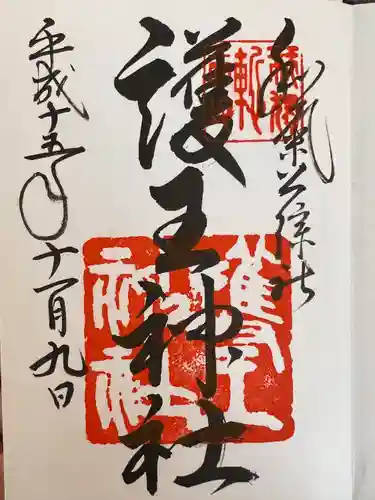 和氣公綜社
護王神社
平成十五年十一月九日
護王神社